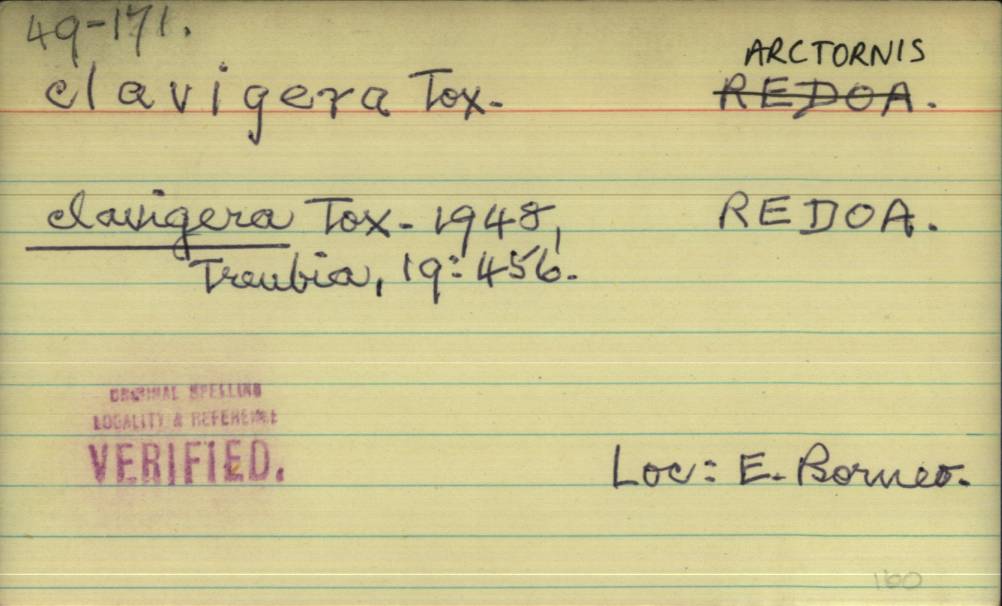 49-171.
ARCTORNIS
clavigera Tox. REDOA.
clavigera Tox. 1948, REDOA.
Treubia, 19:456.
ORIGINAL SPELLING
LOCALITY & REFERENCE
VERIFIED.
Loc: E. Borneo.
160